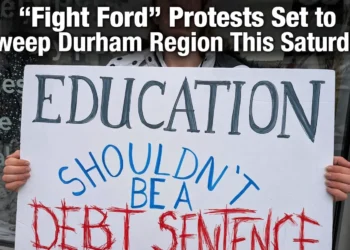 “Fight Ford” Protests Set to
weep Durham Region This Saturd
EDUCATION
SHOULDN'T
BE A
DEBT SENTENCE